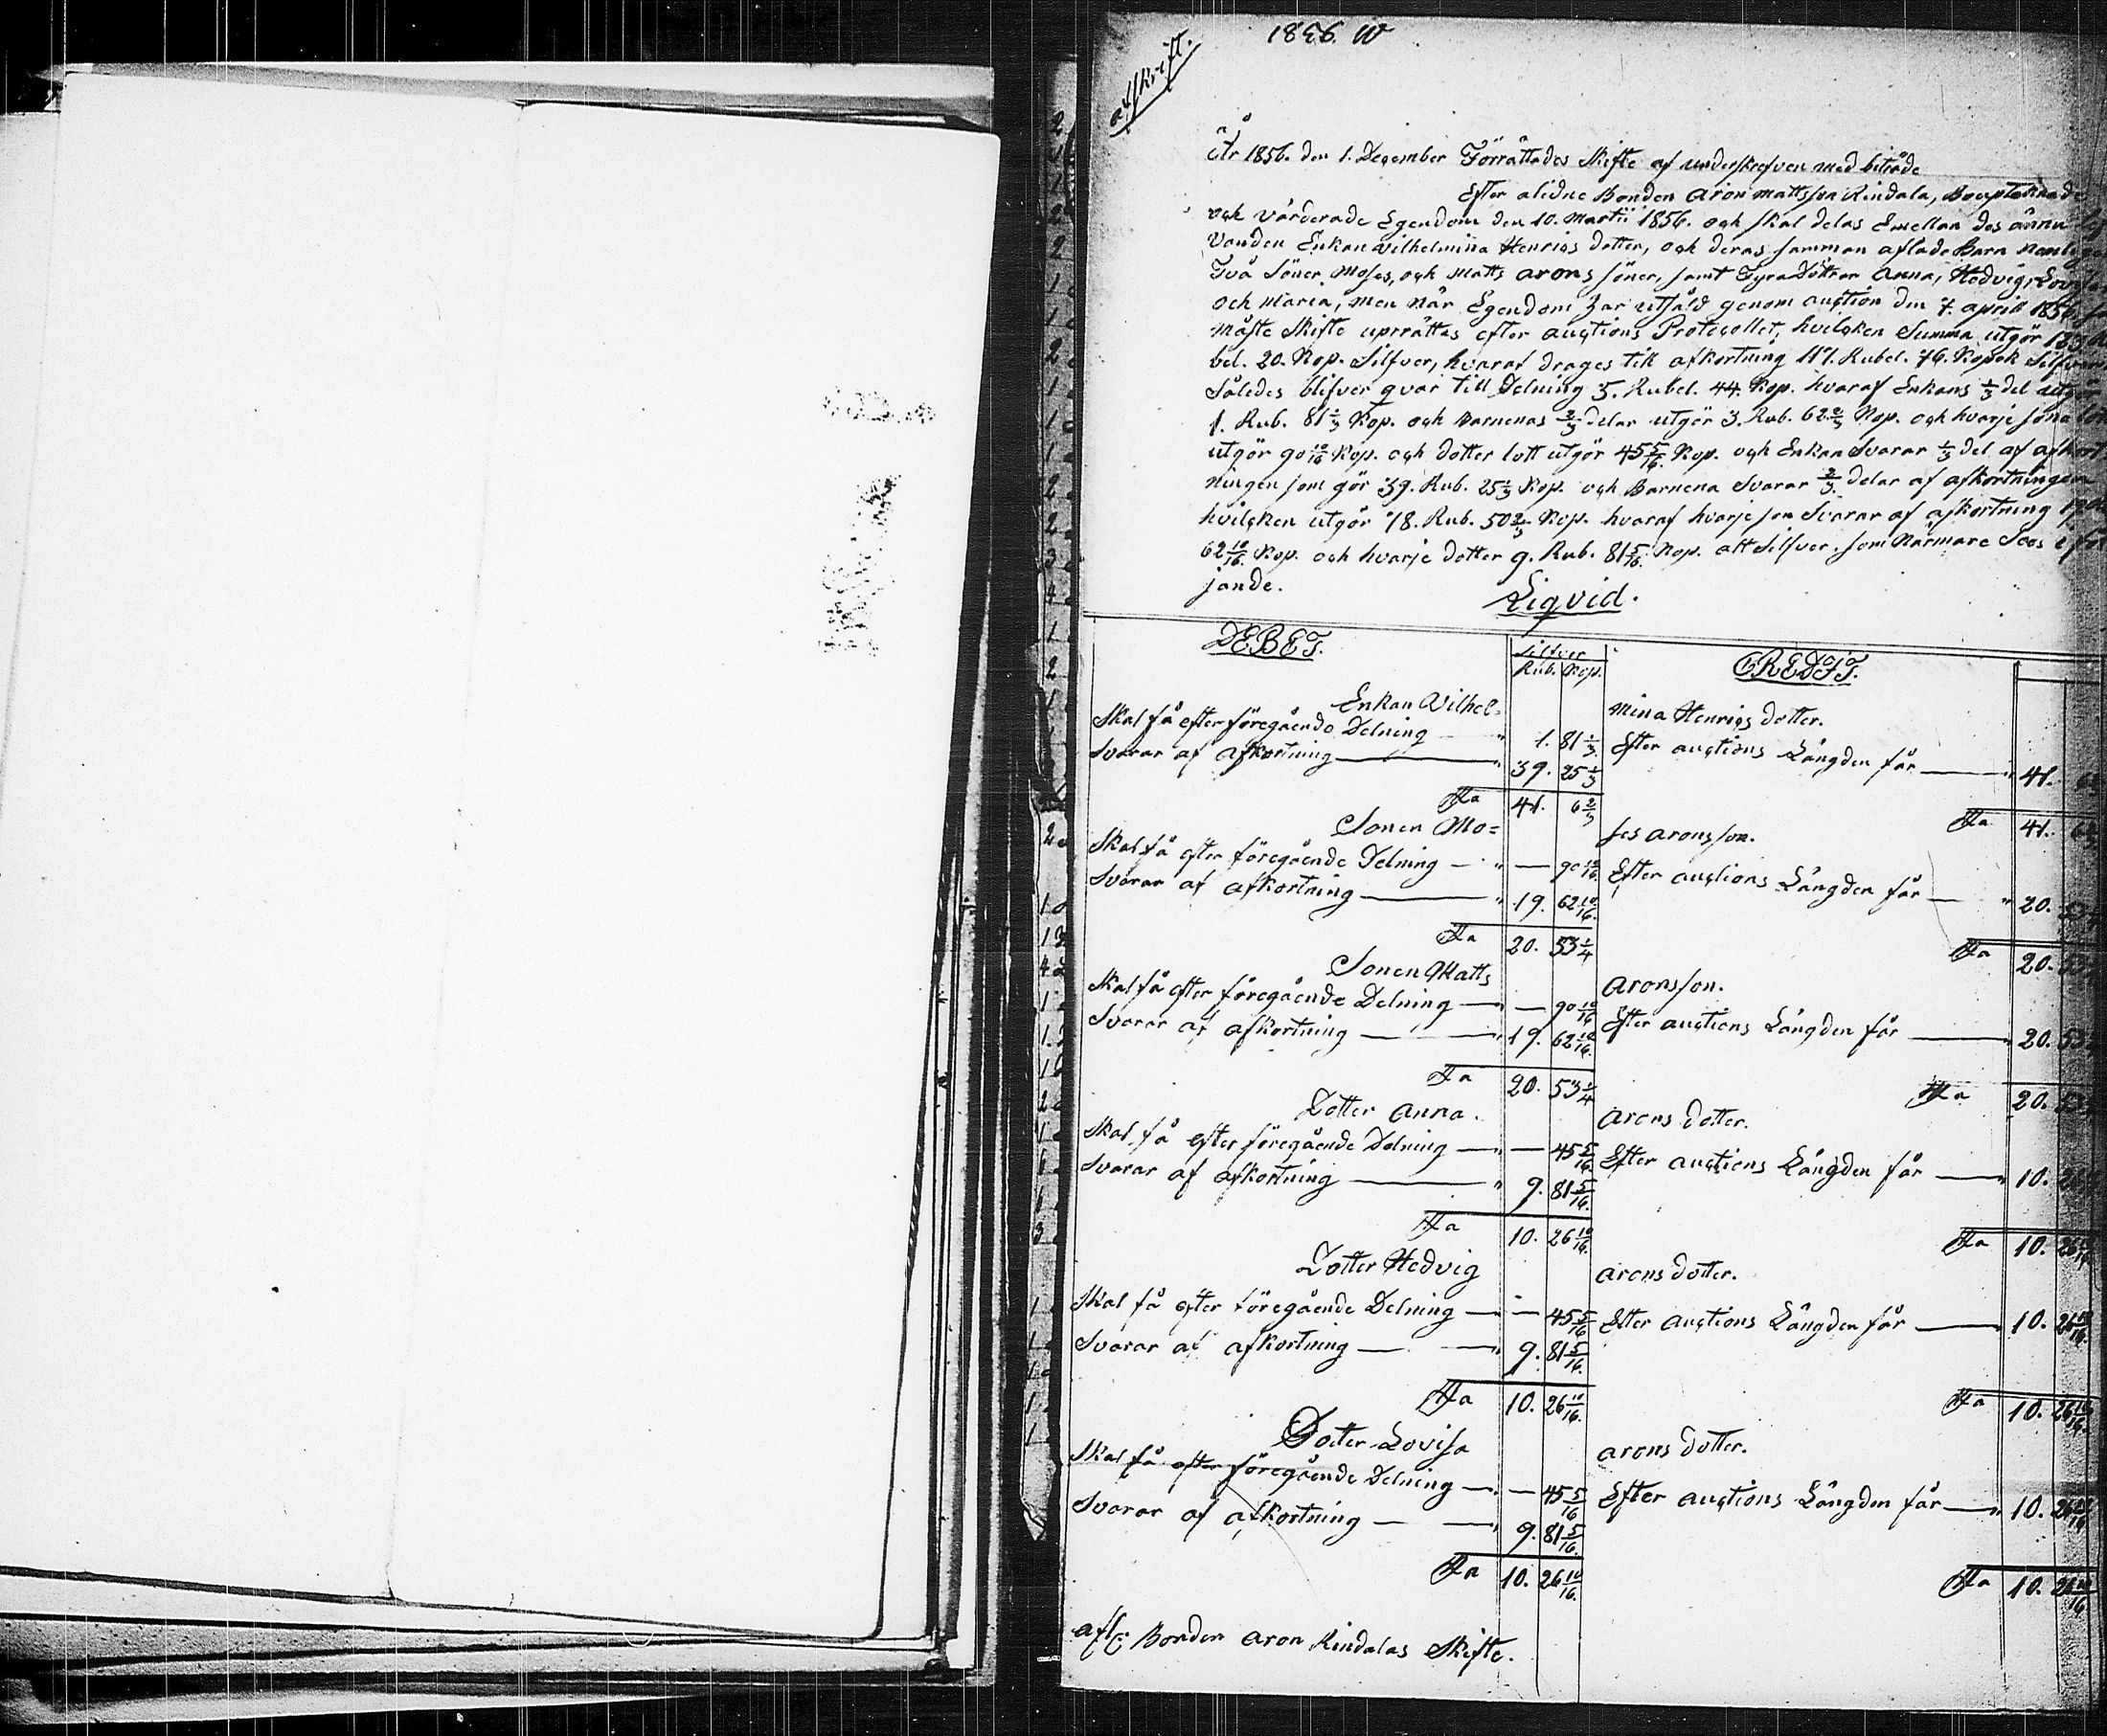 1856. W
afskrift.
År 1856. den 1. December Förrättades Skifte af underskrefven med biträde
Efter alidne Bonden Aron Mattsson Rindala, Boupteknade
och värderade Egendom den 10. Martii 1856. och skal delas Emellan des ännu
Vanden Enkan Wilhelmina Henrics dotter, och deras samman aflade Barn
Två Söner, Moses, och Matts Arons söner, samt Fyra döttrar Anna, Hedvig, Lovisa
och Maria, men när Egendom har utsåld genom auction den 7. april 1856
måste Skifte uprrättas efter auctions Protocollet, hvilcken Summa utgör 123
bel. 20. Kop. Silfver, hvaraf drages till afkortning 117. Rubel. 76. Kopek Silfver
Således blifver qvar till Delning 5. Rubel. 44. Kop. hvaraf Enkans 1/3 del utgör
1. Rub. 81 1/3 Kop. och Barnenas 2/3 delar utgör 3. Rub. 62 2/3 Kop. och hvarje söna
utgör 90 10/16 Kop. och dotter lott utgör 45 5/16. Kop. och Enkan Svarar 1/3 del af afkort
ningen som gör 39. Rub. 25 1/3 Kop. och Barnena Svarar 2/3. delar af afkortningen
hvilcken utgör 78. Rub. 50 2/3 Kop. hvaraf hvarje son Svarar af afkortning 19
62 10/16. Kop. och hvarje dotter 9. Rub. 81 5/16. Kop. allt Silfver. som Närmare Sees
jande.
Liqvid.
DEBET. Silfver CREDIT.
Rub. Kop.
Enkan Wilhel= mina Henrics dotter.
Skal få efter föregående Delning 1. 81 1/3. Efter auctions Längden får 41.
Svarar af afkortning 39. 25 1/3
Sa 41. 6 2/3 Sa 41.
Sonen Mo= ses Aronsson.
Skal få efter föregående Delning — 90 10/16. Efter auctions Längden får 20.
Svarar af afkortning 19. 62 10/16.
Sa 20. 53 1/4 Sa 20.
Sonen Matts Aronsson.
Skal få efter föregående Delning — 90 10/16 Efter auctions Längden får 20. 53
Svarar af afkortning 19. 62 10/16.
Sa 20. 53 1/4 Sa 20.
Dotter Anna. Arons dotter.
Skal få efter föregående Delning — 45 5/16 Efter auctions Längden får 10.
Svarar af afkortning 9. 81 5/16.
Sa 10. 26 10/16. Sa 10. 26
Dotter Hedvig Arons dotter.
Skal få efter föregående Delning — 45 5/16 Efter auctions Längden får 10. 26 10/16.
Svarar af afkortning 9. 81 5/16.
Sa 10. 26 10/16. Sa 10. 26 10/16
Dotter Lovisa Arons dotter.
Skal få efter föregående Delning — 45 5/16 Efter auctions Längden får 10. 26 10/16
Svarar af afkortning 9. 81 5/16.
Sa 10. 26 10/16. Sa 10. 26 10/16
Bonden Aron Rindalas Skifte.